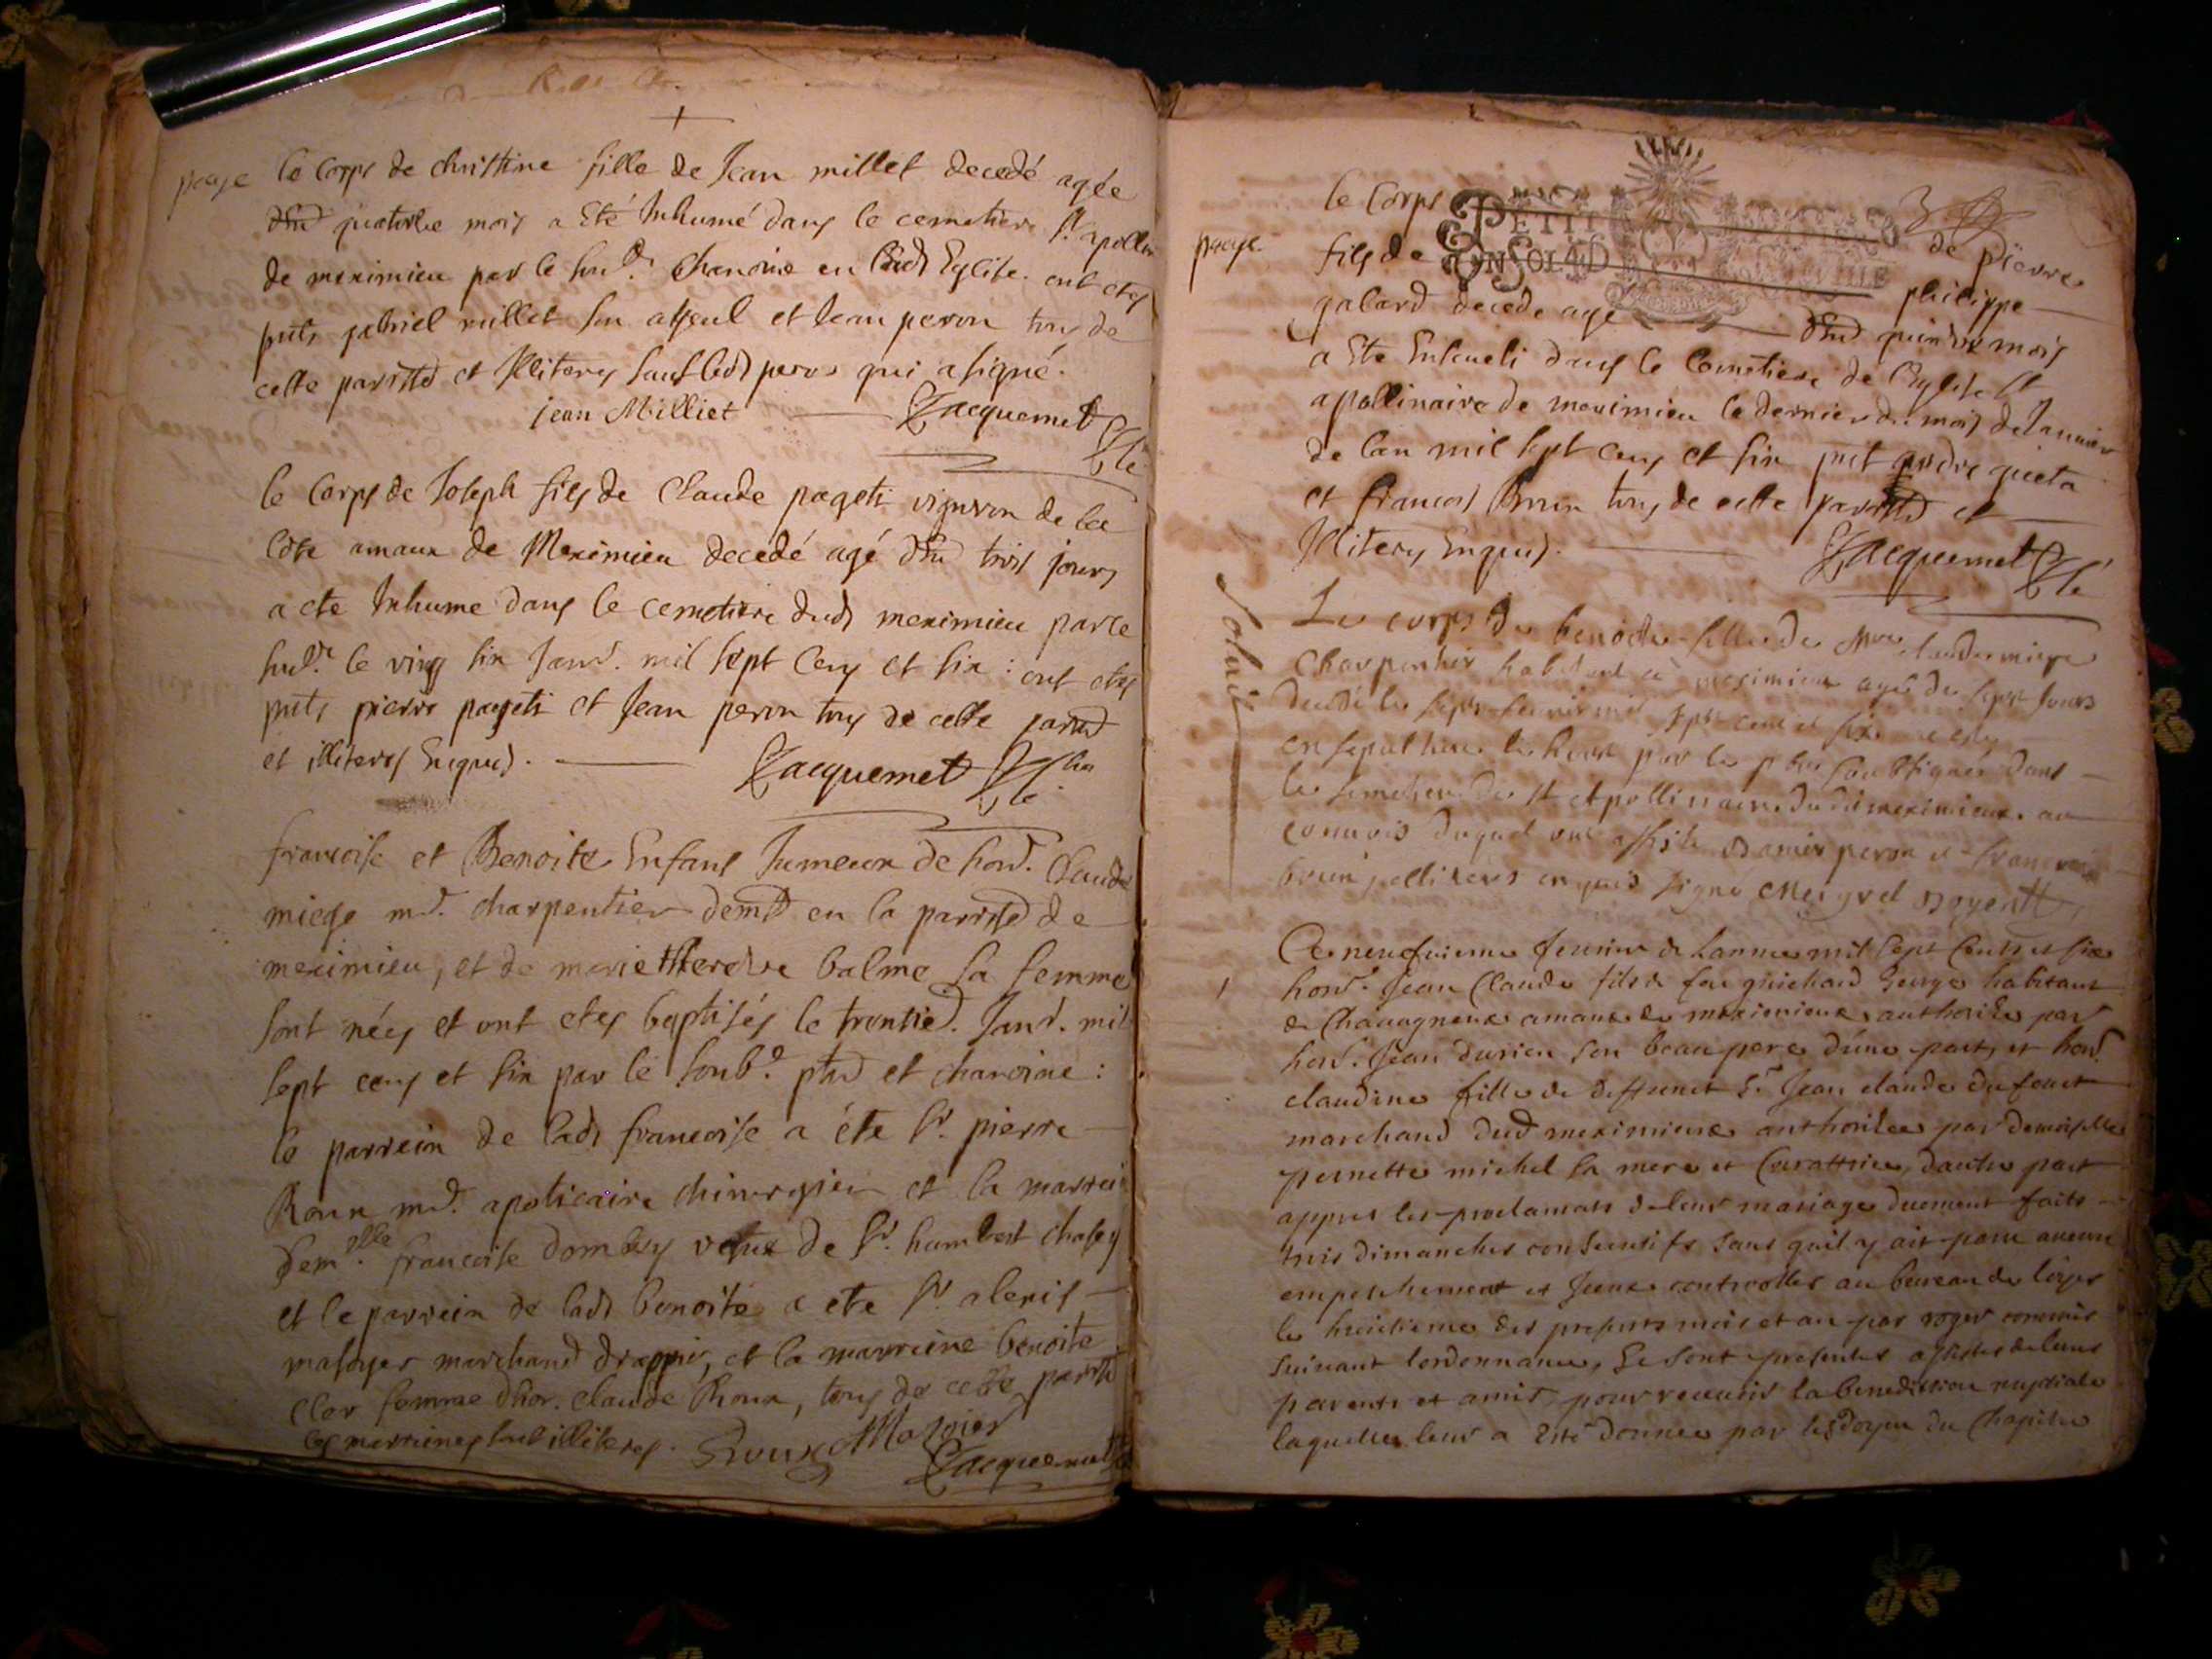 paye
le Corps de christine fille de Jean millet decedé agée
quatorze mois a Eté Inhumé dans le cemetiere St. apollin
de meximieu par le Chanoine en Eglise. ont etés
pnts gabriel millet son ayeul et Jean peron tous de
cette et Illiterés sauf led peron qui a signé.
jean Milliet Jacquemet
le Corps de Joseph fils de Claude pageti vigneron de la
Côte amaux de Meximieu decedé agé d'En trois jours
a ete Inhume dans le cemetiere dud meximieu par le
le ving six Janv. mil sept Cens et six : ont etés
pnts pierre pageti et Jean peron tous de cette
et illiterés Enquis. Jacquemet
francoise et Benoite Enfans Jumeaux de hon. Claude
miege md. charpentier demt en la de
meximieu, et de marie Therese balme sa femme
sont nées et ont etes baptisés le trentie. Janv. mil
sept cens et six par le soub. ptre et chanoine :
le parrein de lade francoise a éte Sr. pierre
Roux md. apoticaire chirurgien et la marrei
Demlle francoise dombey vefve de Sr. humbert chasey
et le parrein de lade benoite a ete Sr. alexis
masoyer marchand drappier, et la marreine benoite
Clor femme d'hon. claude Roux, tous de cette
les marreines sont illiterés. Proux Masoier
Jacquemet
le Corps de pierre
PETIT
paye
fils de philippe
EN SOL 4 D
galard decede age d'En quinze mois
a Ete Enseveli dans le Cemetiere de l'Eglise St
apollinaire de meximieu le dernier du mois de Janvier
de l'an mil sept cens et six pnt andre gueta
et francois Brun tous de cette et
Illiterés Enquis. Jacquemet
Solvit
Le corps de benoite fille de Mre claude miege
Charpentier habitant à meximieux agée de sept Jours
decedé le sept feuvrier mil sept cent et six a esté
en sepulture par le ptre soubsigné dans
le simetiere de St Apollinaire dudit meximieux. au
convois duquel ont assisté peron et francois
brun jllitérés enquis signé doyen
Ce neufvieme feuvrier de l'annee mil sept Cents et six
1
hon. Jean Claude fils de feu guichard George habitant
de Chavagneux amaux de meximieux authorisé par
hon. Jean durieu son beau pere d'une part, et hon.
claudine fille de deffunct Sr. Jean claude du fouct
marchand dud meximieux authorisée par Demoiselle
pernette michel sa mere et Curattrice, dautre part
appres les proclamats de leur mariage duement faits
trois dimanches consecutifs sans quil y ait paru aucun
empeschement et Jceux controllés au bureau de loyes
le huictieme des presents mois et an par roger commis
suivant lordonnance, Se sont presentés assistés de leurs
parents et amis, pour recevoir la benediction nuptiale
laquelle leur a Esté donnée par les doyen du Chapitre